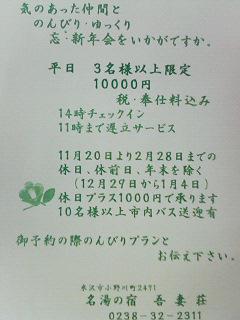 気のあった仲間と
のんびり・ゆっくり
忘・新年会をいかがですか。
平日 3名様以上限定
10000円
税・奉仕料込み
14時チェックイン
11時まで遅立サービス
11月20日より2月28日までの
休日、休前日、年末を除く
(12月29日から1月4日)
休日プラス1000円で承ります
10名様以上市内バス送迎有
御予約の際のんびりプランと
お伝え下さい。
米沢市小野川町2471
名湯の宿 吾妻荘
0238-32-2311